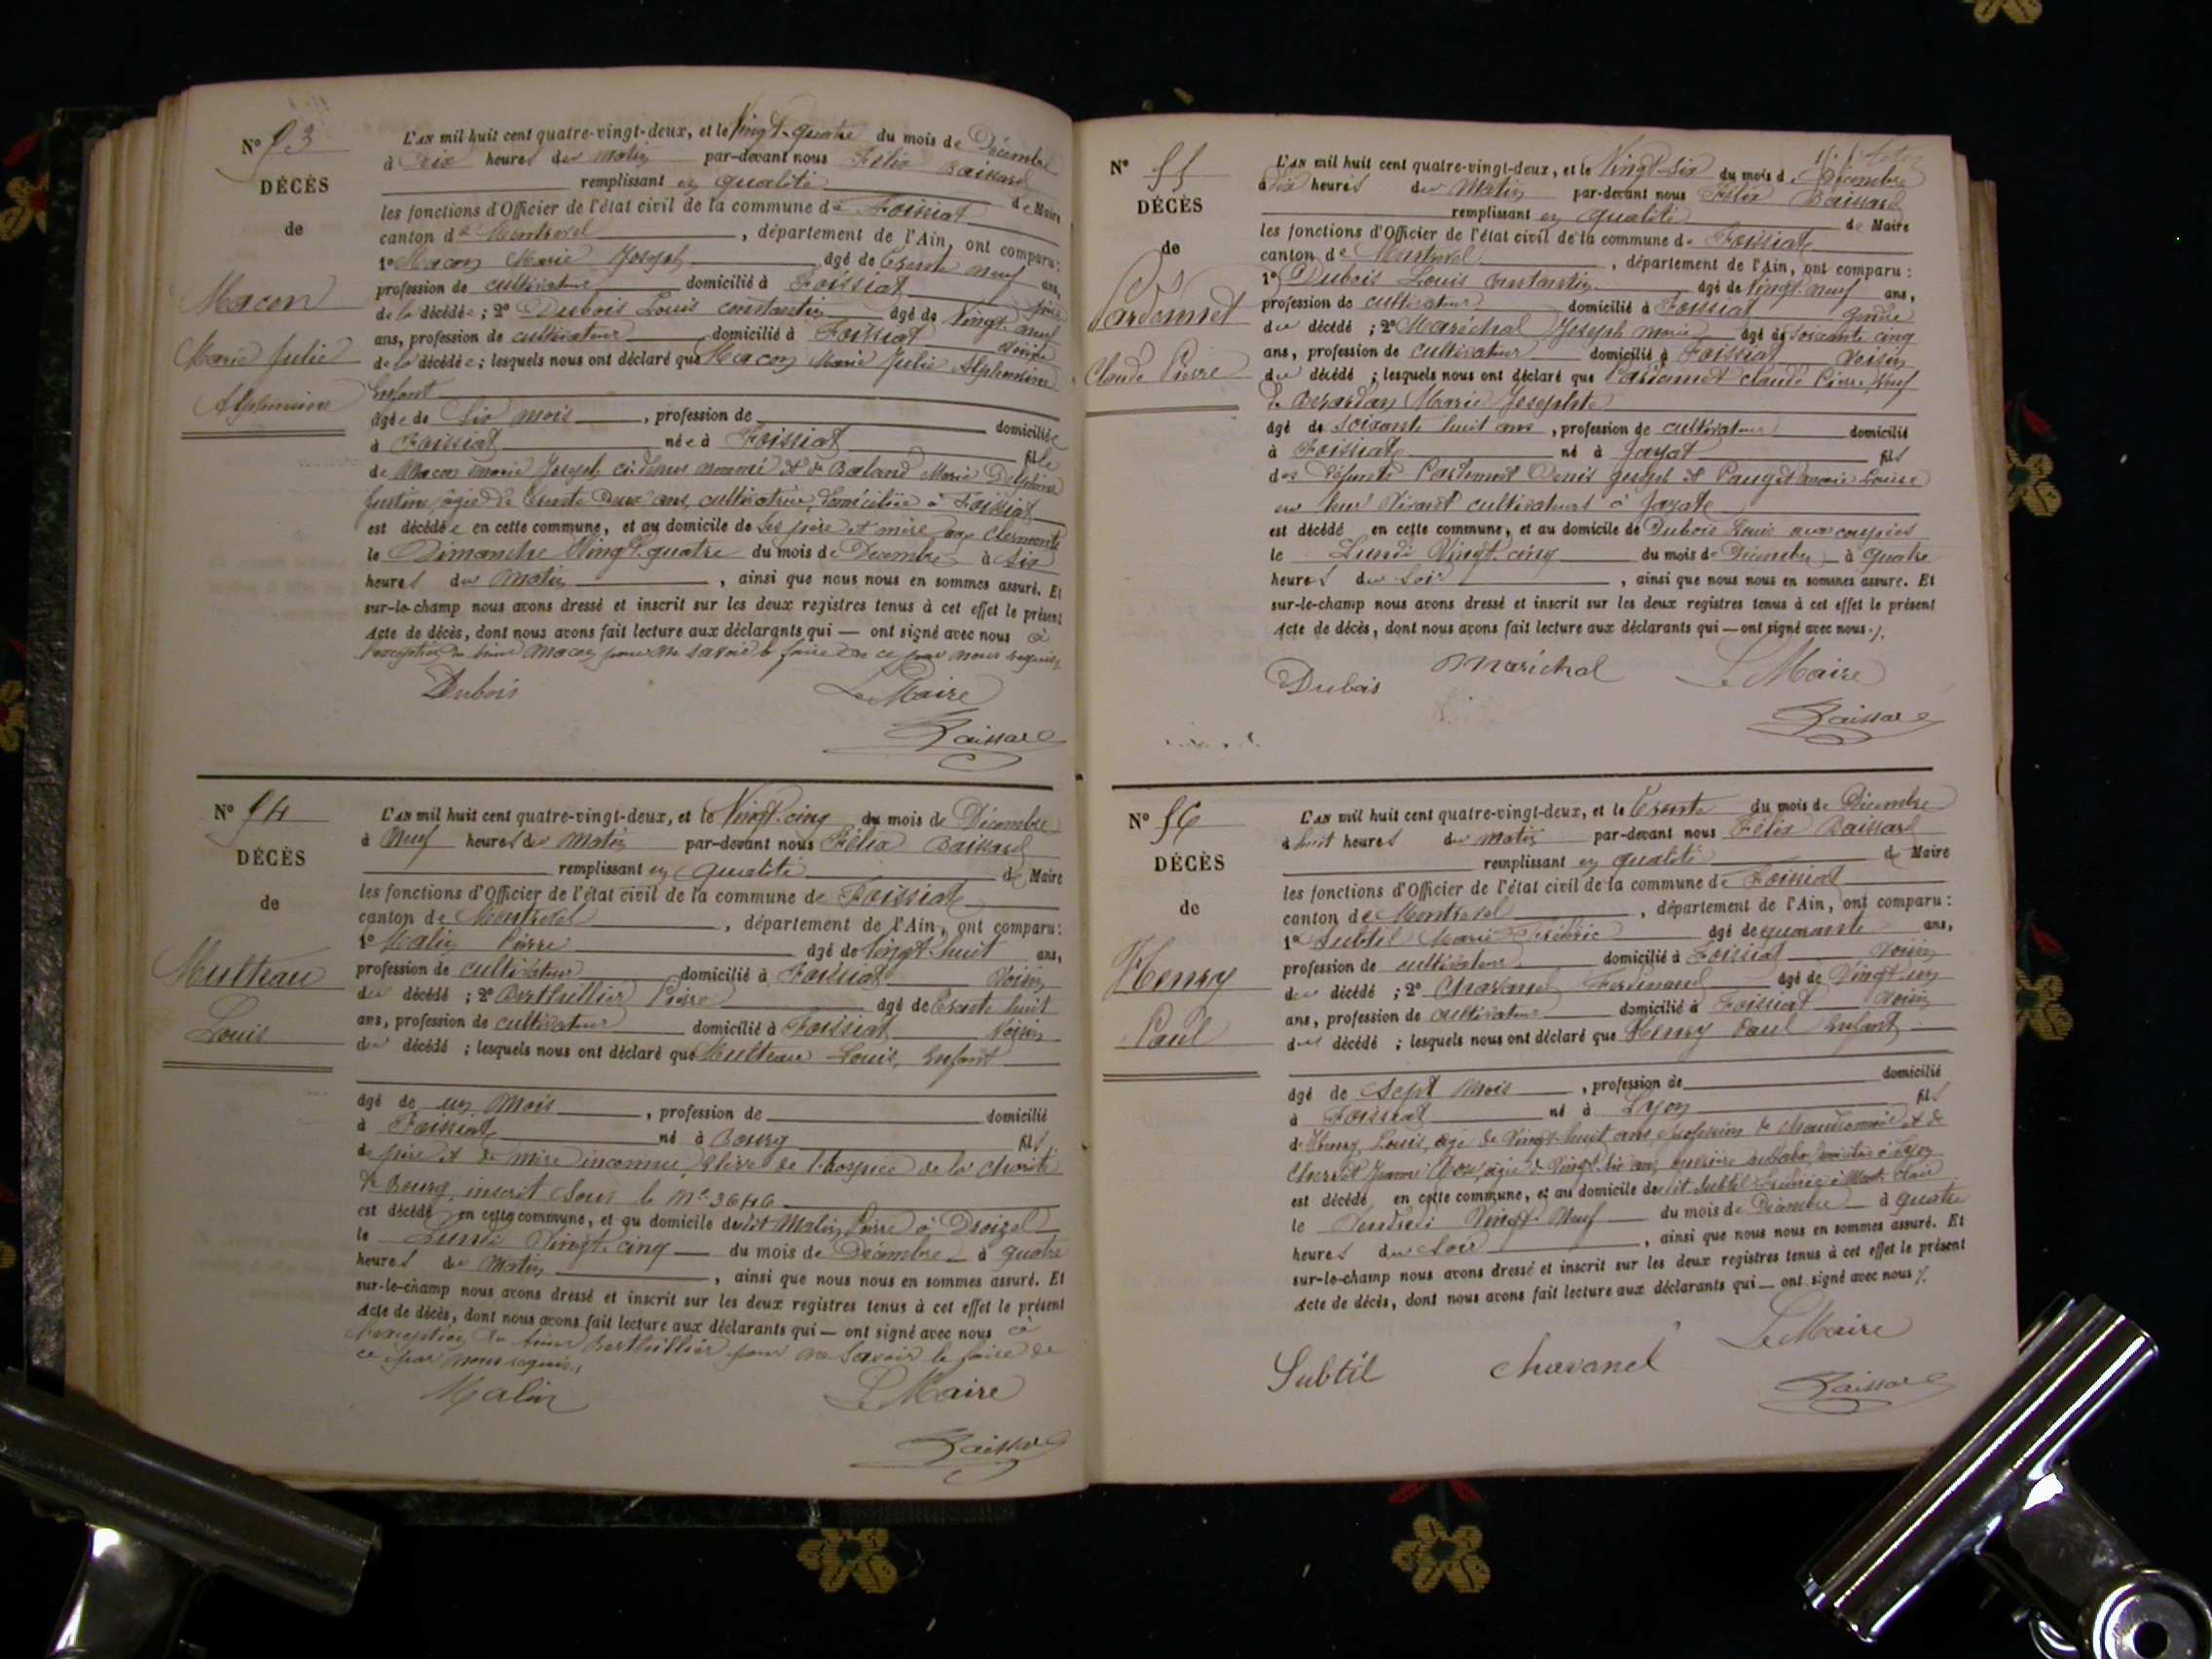 N° 53
DÉCÈS
de
Macon
Marie Julie
Alphonsine
L'AN mil huit cent quatre-vingt-deux, et le Vingt-quatre du mois de Décembre
à Dix heures du matin par-devant nous Félix Baissard
remplissant en qualité de Maire
les fonctions d'Officier de l'état civil de la commune de Foissiat
canton de Montrevel, département de l'Ain, ont comparu :
1° Macon Marie Joseph âgé de trente neuf ans,
profession de cultivateur domicilié à Foissiat père
de la décédée ; 2° Dubois Louis constantin âgé de Vingt neuf
ans, profession de cultivateur domicilié à Foissiat Voisin
de la décédée ; lesquels nous ont déclaré que Macon Marie Julie Alphonsine
Enfant
âgée de Six mois, profession de domiciliée
à Foissiat née à Foissiat fille
de Macon Marie Joseph ci-dessus nommé et de Baland Marie Delphine
Justine âgée de trente deux ans, cultivatrice, domiciliée à Foissiat
est décédée en cette commune, et au domicile de Ses père et mère aux Clermonts
le Dimanche Vingt quatre du mois de Décembre à Six
heures du Matin, ainsi que nous nous en sommes assuré. Et
sur-le-champ nous avons dressé et inscrit sur les deux registres tenus à cet effet le présent
Acte de décès, dont nous avons fait lecture aux déclarants qui — ont signé avec nous à
l'exception du Sieur Macon pour ne savoir le faire de ce par nous requis.
Dubois Le Maire
Baissard
N° 54
DÉCÈS
de
Multeau
Louis
L'AN mil huit cent quatre-vingt-deux, et le Vingt-cinq du mois de Décembre
à Neuf heures du Matin par-devant nous Félix Baissard
remplissant en qualité de Maire
les fonctions d'Officier de l'état civil de la commune de Foissiat
canton de Montrevel, département de l'Ain, ont comparu :
1° Malin Pierre âgé de Vingt-huit ans,
profession de cultivateur domicilié à Foissiat Voisin
du décédé ; 2° Berthillier Pierre âgé de trente huit
ans, profession de cultivateur domicilié à Foissiat Voisin
du décédé ; lesquels nous ont déclaré que Multeau Louis, Enfant
âgé de un Mois, profession de domicilié
à Foissiat né à Bourg fils
de père et de mère inconnue, élève de l'hospice de la Charité
de Bourg, inscrit Sous le N° 3646
est décédé en cette commune, et au domicile dudit Malin Pierre à
le Lundi Vingt-cinq du mois de Décembre à quatre
heures du Matin, ainsi que nous nous en sommes assuré. Et
sur-le-champ nous avons dressé et inscrit sur les deux registres tenus à cet effet le présent
Acte de décès, dont nous avons fait lecture aux déclarants qui — ont signé avec nous à
l'exception du Sieur Berthillier pour ne Savoir le faire de
ce par nous requis.
Malin Le Maire
Baissard
N° 55
DÉCÈS
de
Pardonnet
Claude Pierre
L'AN mil huit cent quatre-vingt-deux, et le Vingt-Six du mois de Décembre
à Six heures du Matin par-devant nous Félix Baissard
remplissant en qualité de Maire
les fonctions d'Officier de l'état civil de la commune de Foissiat
canton de Montrevel, département de l'Ain, ont comparu :
1° Dubois Louis constantin âgé de Vingt-neuf ans,
profession de cultivateur domicilié à Foissiat gendre
du décédé ; 2° Maréchal Joseph marie âgé de Soixante cinq
ans, profession de cultivateur domicilié à Foissiat Voisin
du décédé ; lesquels nous ont déclaré que Pardonnet Claude Pierre, Veuf
de Marie Josephte
âgé de Soixante huit ans, profession de cultivateur domicilié
à Foissiat né à Jayat fils
des défunts Pardonnet Denis Joseph et Pauget Marie Louise
en leur Vivant cultivateurs à Jayat
est décédé en cette commune, et au domicile de Dubois Louis aux
le Lundi Vingt-cinq du mois de Décembre à Quatre
heures du Soir, ainsi que nous nous en sommes assuré. Et
sur-le-champ nous avons dressé et inscrit sur les deux registres tenus à cet effet le présent
Acte de décès, dont nous avons fait lecture aux déclarants qui — ont signé avec nous ./.
Dubois Maréchal Le Maire
Baissard
N° 56
DÉCÈS
de
Henry
Paul
L'AN mil huit cent quatre-vingt-deux, et le trente du mois de Décembre
à huit heures du matin par-devant nous Félix Baissard
remplissant en qualité de Maire
les fonctions d'Officier de l'état civil de la commune de Foissiat
canton de Montrevel, département de l'Ain, ont comparu :
1° Subtil Marie Frédéric âgé de quarante ans,
profession de cultivateur domicilié à Foissiat Voisin
du décédé ; 2° Chavanel Ferdinand âgé de Vingt un
ans, profession de cultivateur domicilié à Foissiat Voisin
du décédé ; lesquels nous ont déclaré que Henry Paul Enfant
âgé de Sept Mois, profession de domicilié
à Foissiat né à Lyon fils
de Henry Louis, âgé de Vingt-huit ans, profession de et de
Jeanne âgée de Vingt ans, domiciliés à Lyon
est décédé en cette commune, et au domicile dudit Subtil Frédéric à
le Vendredi Vingt Neuf du mois de Décembre à quatre
heures du Soir, ainsi que nous nous en sommes assuré. Et
sur-le-champ nous avons dressé et inscrit sur les deux registres tenus à cet effet le présent
Acte de décès, dont nous avons fait lecture aux déclarants qui — ont signé avec nous ./.
Subtil chavanel Le Maire
Baissard